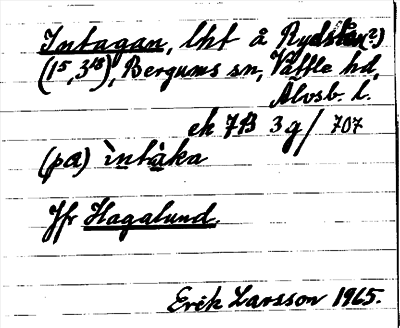 Intagan, lht å Rydstan(?)
(1⁵, 3¹⁵), Bergums sn, Vättle hd,
Älvsb. l.
ek 7B 3g/707
(pa) ìntàka
Jfr Hagalund.
Erik Larsson 1965.